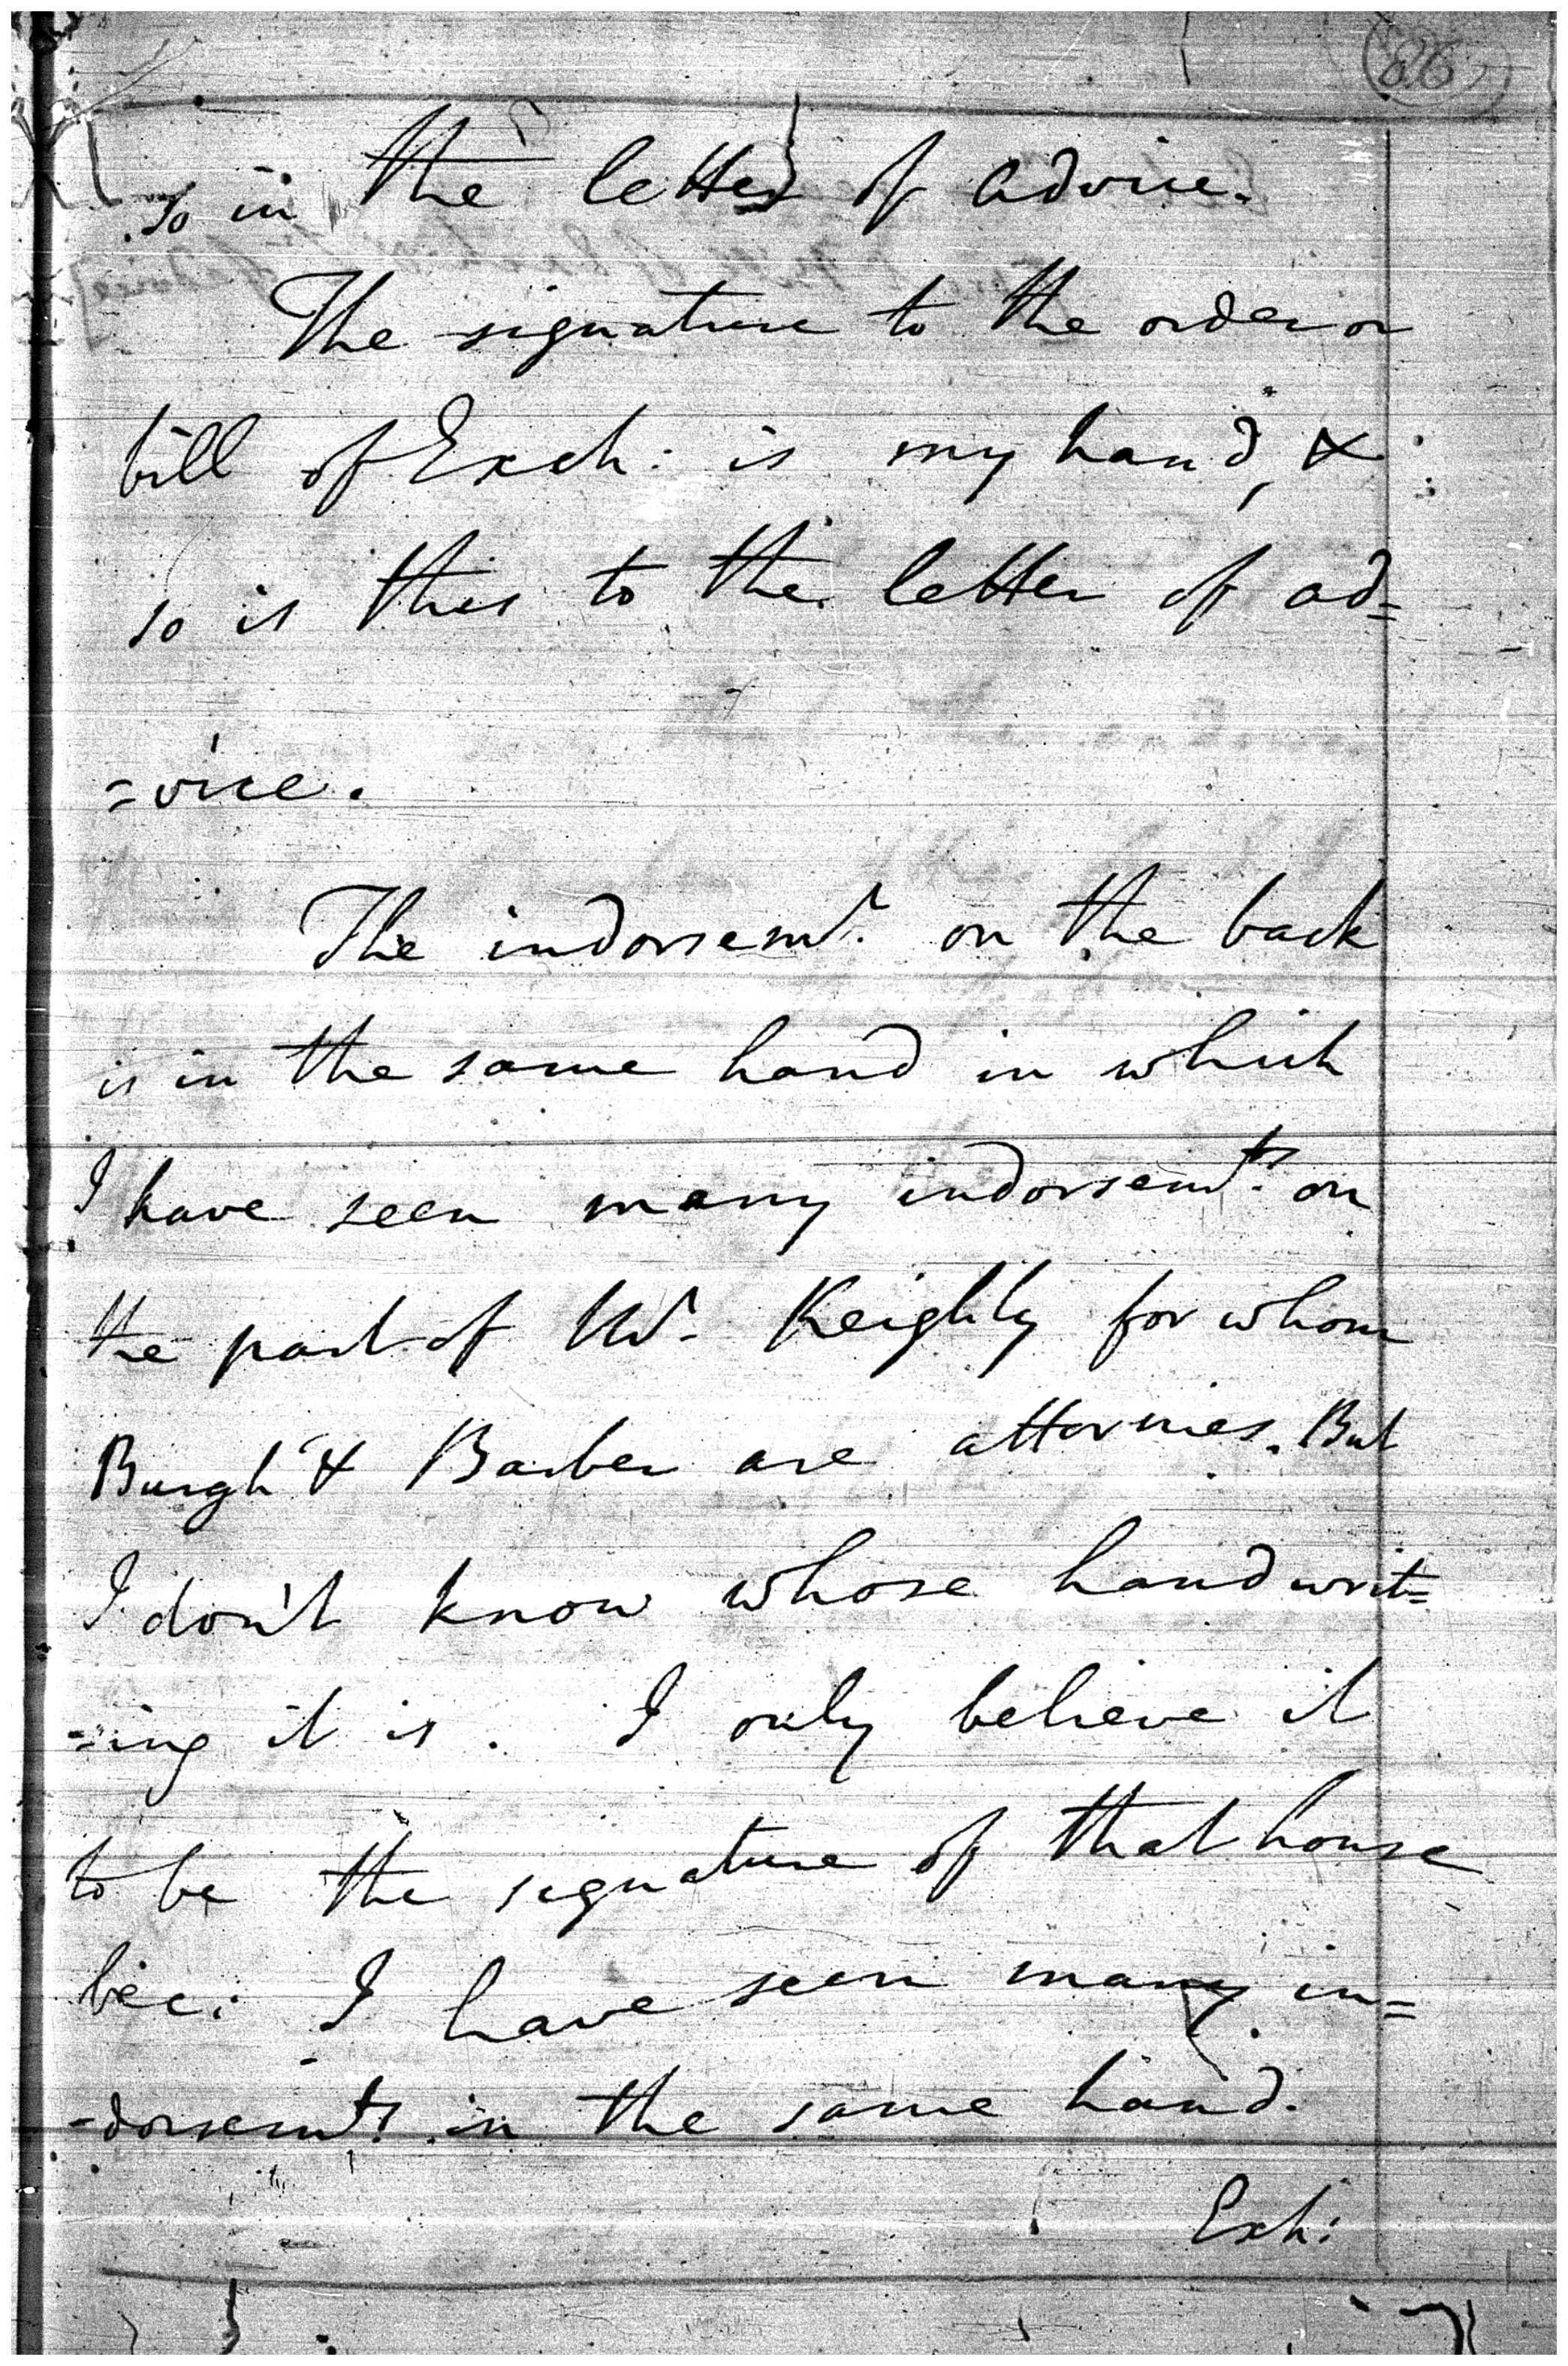 so in the letter of advice.
The signature to the order or
bill of Exch: is my hand, &
so is this to the letter of ad=
=vice.
The indorsemt. on the back
is in the same hand in which
I have seen many indorsemts. on
the part of Mr. Keighly for whom
Burgh & Barber are attornies. But
I don't know whose handwrit=
=ing it is. I only believe it
to be the signature of that house
bec: I have seen many in=
=dorsemts. in the same hand.
Exh: